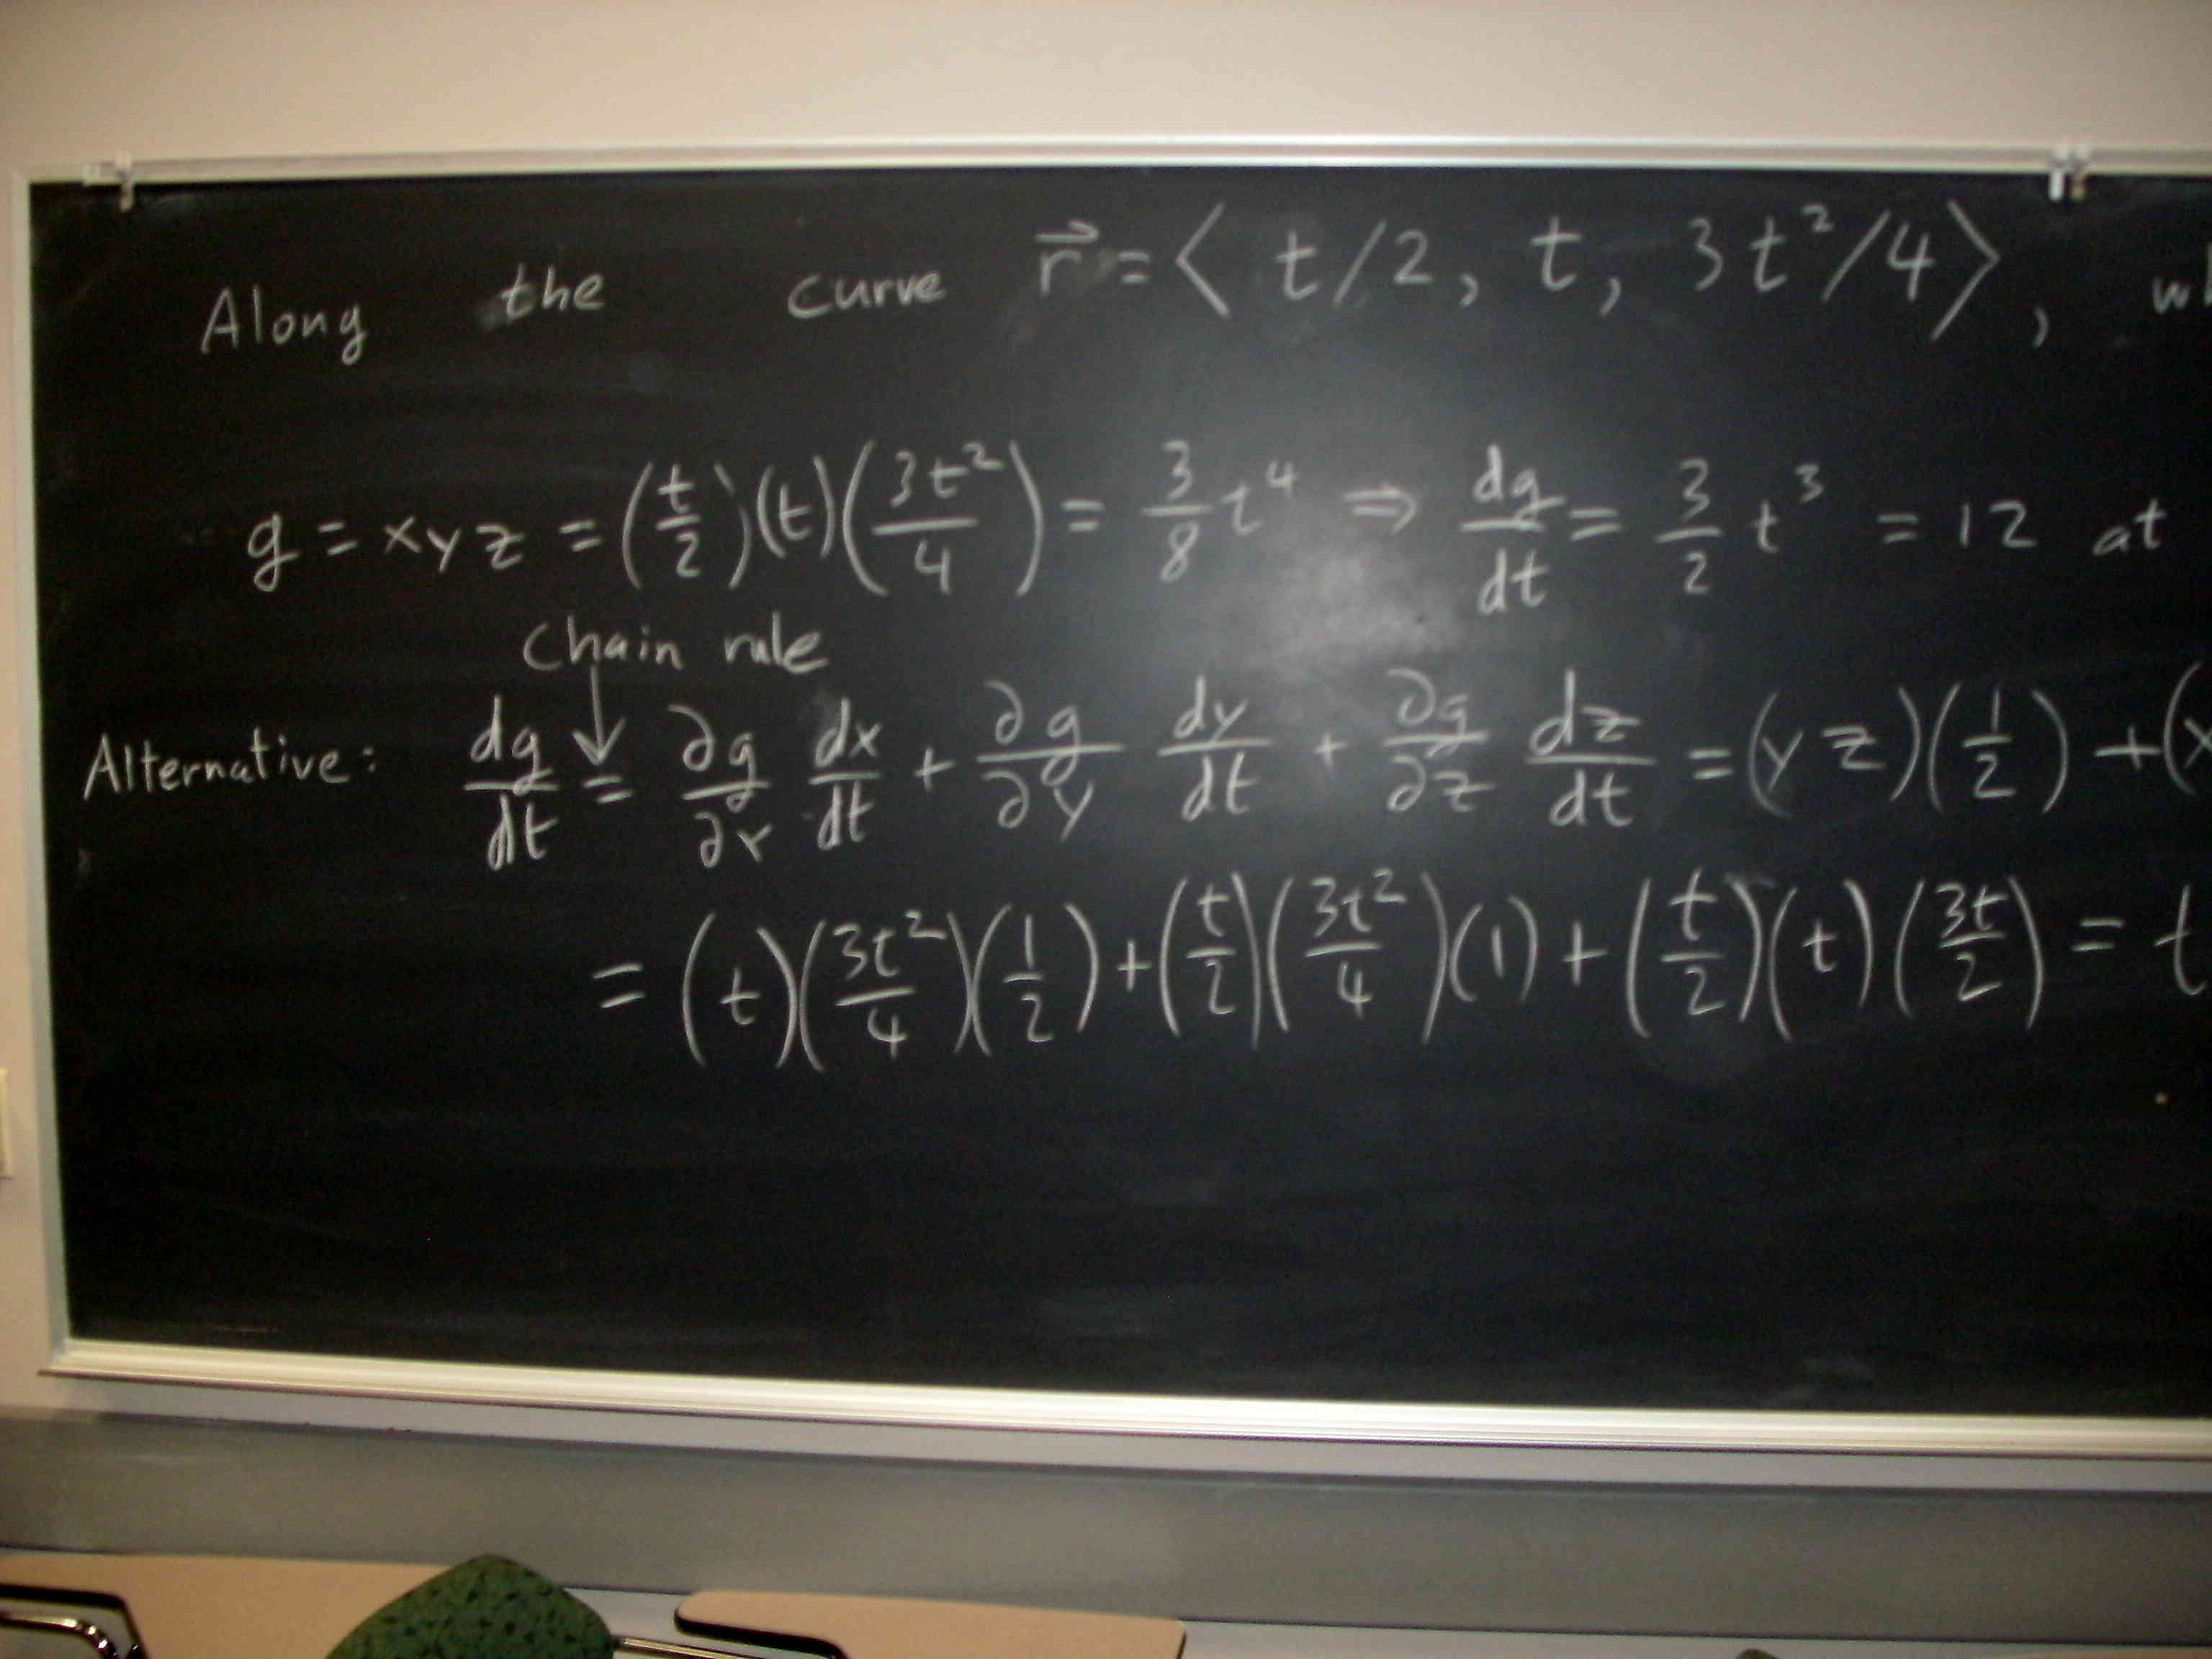 Along the curve r⃗ = ⟨ t/2, t, 3t²/4 ⟩,
g = xyz = (t/2)(t)(3t²/4) = 3/8 t⁴ ⇒ dg/dt = 3/2 t³ = 12 at
chain rule
Alternative: dg/dt = ∂g/∂x dx/dt + ∂g/∂y dy/dt + ∂g/∂z dz/dt = (yz)(1/2) + (x
= (t)(3t²/4)(1/2) + (t/2)(3t²/4)(1) + (t/2)(t)(3t/2) = t